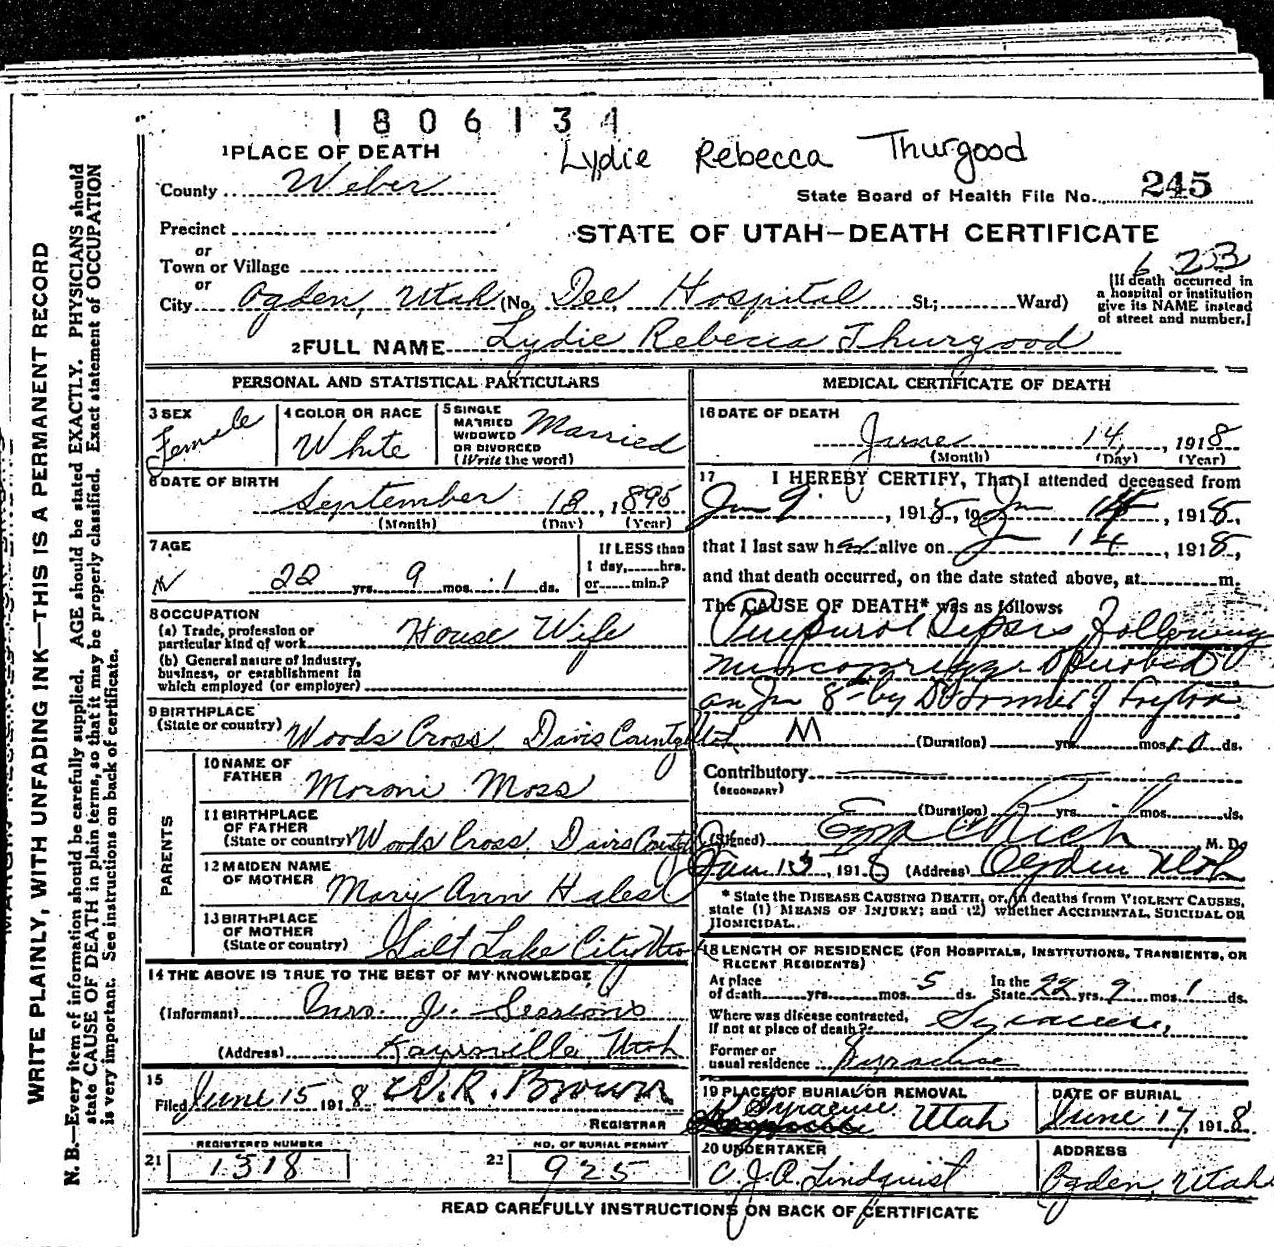 1806131
Lydie Rebecca Thurgood
1 PLACE OF DEATH
County Weber
State Board of Health File No. 245
Precinct
STATE OF UTAH—DEATH CERTIFICATE
or
Town or Village
or
623
City Ogden, Utah (No. Dee Hospital St.; Ward)
[If death occurred in a hospital or institution give its NAME instead of street and number.]
2 FULL NAME Lydie Rebecca Thurgood
PERSONAL AND STATISTICAL PARTICULARS
3 SEX Female
4 COLOR OR RACE White
5 SINGLE MARRIED WIDOWED OR DIVORCED (Write the word) Married
6 DATE OF BIRTH
September 18, 1895
(Month) (Day) (Year)
7 AGE
22 yrs. 9 mos. 1 ds.
If LESS than
1 day, hrs.
or min.?
8 OCCUPATION
(a) Trade, profession or
particular kind of work House Wife
(b) General nature of industry,
business, or establishment in
which employed (or employer)
9 BIRTHPLACE
(State or country) Woods Cross, Davis County Utah
PARENTS
10 NAME OF
FATHER Moroni Moss
11 BIRTHPLACE
OF FATHER
(State or country) Woods Cross, Davis County
12 MAIDEN NAME
OF MOTHER Mary Ann Hales
13 BIRTHPLACE
OF MOTHER
(State or country) Salt Lake City
14 THE ABOVE IS TRUE TO THE BEST OF MY KNOWLEDGE
(Informant) Mrs. J. Sessions
(Address) Kaysville, Utah
15
Filed June 15 1918 W.R. Brown
REGISTRAR
REGISTERED NUMBER
21 1318
NO. OF BURIAL PERMIT
22 925
MEDICAL CERTIFICATE OF DEATH
16 DATE OF DEATH
June 14, 1918
(Month) (Day) (Year)
17 I HEREBY CERTIFY, That I attended deceased from
Jun 9, 1918, to Jun 14, 1918,
that I last saw her alive on J 14, 1918,
and that death occurred, on the date stated above, at m.
The CAUSE OF DEATH* was as follows:
Sepsis Following
on Jun 8th by Dr
M (Duration) yrs. mos. 10 ds.
Contributory
(SECONDARY)
(Duration) yrs. mos. ds.
(Signed) Ezra C Rich M. D.
Jun 15, 1918 (Address) Ogden Utah
* State the DISEASE CAUSING DEATH, or, in deaths from VIOLENT CAUSES,
state (1) MEANS OF INJURY; and (2) whether ACCIDENTAL, SUICIDAL OR
HOMICIDAL.
18 LENGTH OF RESIDENCE (FOR HOSPITALS, INSTITUTIONS, TRANSIENTS, OR
RECENT RESIDENTS)
At place of death yrs. mos. 5 ds. In the State 22 yrs. 9 mos. 1 ds.
Where was disease contracted,
if not at place of death? Syracuse,
Former or
usual residence Syracuse
19 PLACE OF BURIAL OR REMOVAL
Syracuse Utah
DATE OF BURIAL
June 17, 1918
20 UNDERTAKER
C.J.A. Lindquist
ADDRESS
Ogden, Utah
READ CAREFULLY INSTRUCTIONS ON BACK OF CERTIFICATE
WRITE PLAINLY, WITH UNFADING INK—THIS IS A PERMANENT RECORD
N. B.—Every item of information should be carefully supplied. AGE should be stated EXACTLY. PHYSICIANS should
state CAUSE OF DEATH in plain terms, so that it may be properly classified. Exact statement of OCCUPATION
is very important. See instructions on back of certificate.